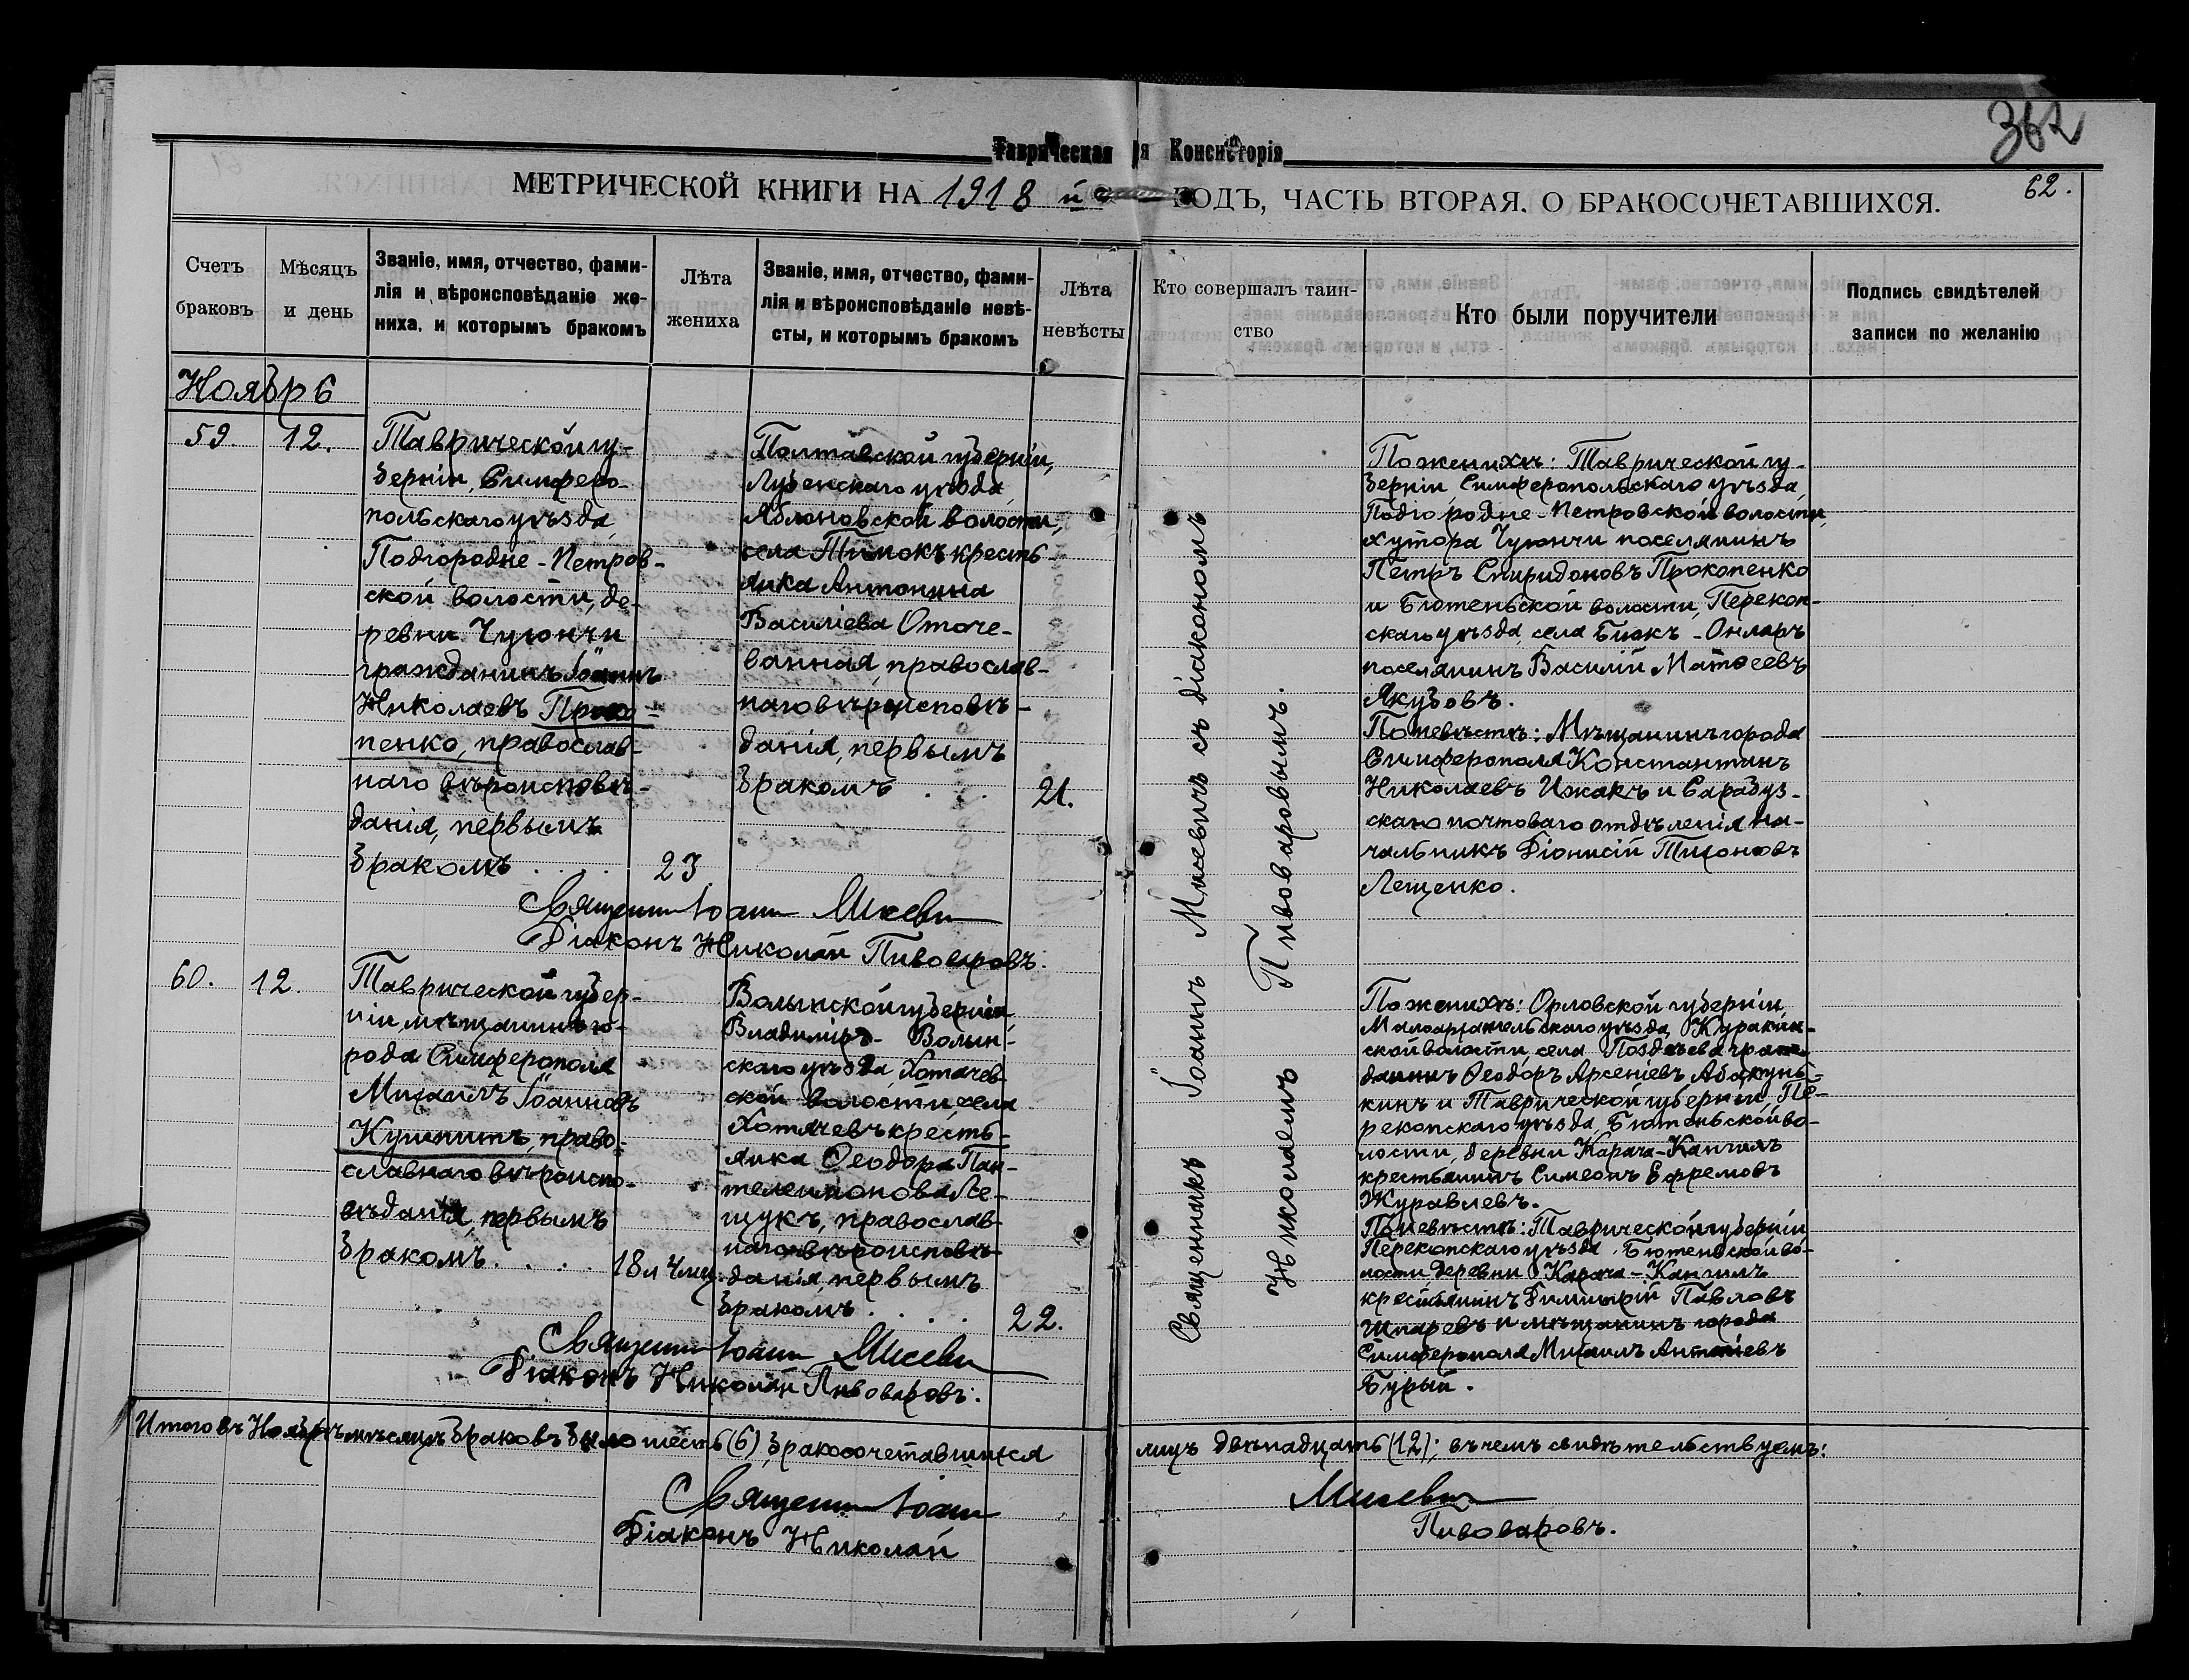 362
Таврическая Консисторія
МЕТРИЧЕСКОЙ КНИГИ НА 1918 й ГОДЪ, ЧАСТЬ ВТОРАЯ. О БРАКОСОЧЕТАВШИХСЯ.
62.
Счетъ
браковъ
Мѣсяцъ
и день
Званіе, имя, отчество, фами-
лія и вѣроисповѣданіе же-
ниха, и которымъ бракомъ
Лѣта
жениха
Званіе, имя, отчество, фами-
лія и вѣроисповѣданіе невѣ-
сты, и которымъ бракомъ
Лѣта
невѣсты
Кто совершалъ таин-
ство
Кто были поручители
Подпись свидѣтелей
записи по желанію
Ноябрь
59.
12.
Таврической гу-
берніи, Симферо-
польскаго уѣзда
Подгородне-Петров-
ской волости, де-
ревни Чуюнчи
гражданинъ Іоаннъ
Николаевъ Проко-
пенко, православ-
наго вѣроисповѣ-
данія, первымъ
бракомъ . . . .
23
Полтавской губерніи,
Лубенскаго уѣзда,
Яблоновской волости,
села Тимокъ кресть-
янка Антонина
Василіева Оточе-
ванная, православ-
наго вѣроисповѣ-
данія, первымъ
бракомъ . . .
21.
Священникъ Іоаннъ Мисевичъ съ діакономъ
Николаемъ Пивоваровымъ.
По женихѣ: Таврической гу-
берніи Симферопольскаго уѣзда,
Подгородне-Петровской волости,
хутора Чуюнчи поселянинъ
Петръ Спиридоновъ Прокопенко
и Бютеньской волости, Перекоп-
скаго уѣзда, села Биюкъ-Онларъ
поселянинъ Василій Матѳеевъ
Якубовъ.
По невѣстѣ: Мѣщанинъ города
Симферополя Константинъ
Николаевъ Ижакъ и Сарабуз-
скаго почтоваго отдѣленія на-
чальникъ Діонисій Тихоновъ
Лещенко.
Священникъ Іоаннъ Мисевичъ
Діаконъ Николай Пивоваровъ.
60.
12.
Таврической губер-
ніи мѣщанинъ го-
рода Симферополя
Михаилъ Іоанновъ
Кушнитъ, право-
славнаго вѣроиспо-
вѣданія, первымъ
бракомъ. . . .
18 л 4 мц.
Волынской губерніи
Владиміръ-Волын-
скаго уѣзда, Хотячев-
ской волости, села
Хотячевъ кресть-
янка Ѳеодора Пан-
телеимонова Ле-
щукъ, православ-
наго вѣроисповѣ-
данія, первымъ
бракомъ . . . .
22.
По женихѣ: Орловской губерніи,
Малоархангельскаго уѣзда, Куракин-
ской волости, села Поздѣева граж-
данинъ Ѳеодоръ Арсеніевъ Абакунь-
кинъ и Таврической губерніи, Пе-
рекопскаго уѣзда, Бютеньской во-
лости, деревни Карача-Кангилъ
крестьянинъ Симеонъ Ефремовъ
Журавлевъ.
По невѣстѣ: Таврической губерніи
Перекопскаго уѣзда, Бютеньской во-
лости, деревни Карача-Кангилъ
крестьянинъ Димитрій Павловъ
Шпаревъ и мѣщанинъ города
Симферополя Михаилъ Антоніевъ
Бурый.
Священникъ Іоаннъ Мисевичъ
Діаконъ Николай Пивоваровъ.
Итого въ Ноябрѣ мѣсяцѣ браковъ было шесть (6), бракосочетавшихся лицъ двѣнадцать (12); въ чемъ свидѣтельствуемъ:
Священникъ Іоаннъ Мисевичъ
Діаконъ Николай Пивоваровъ.